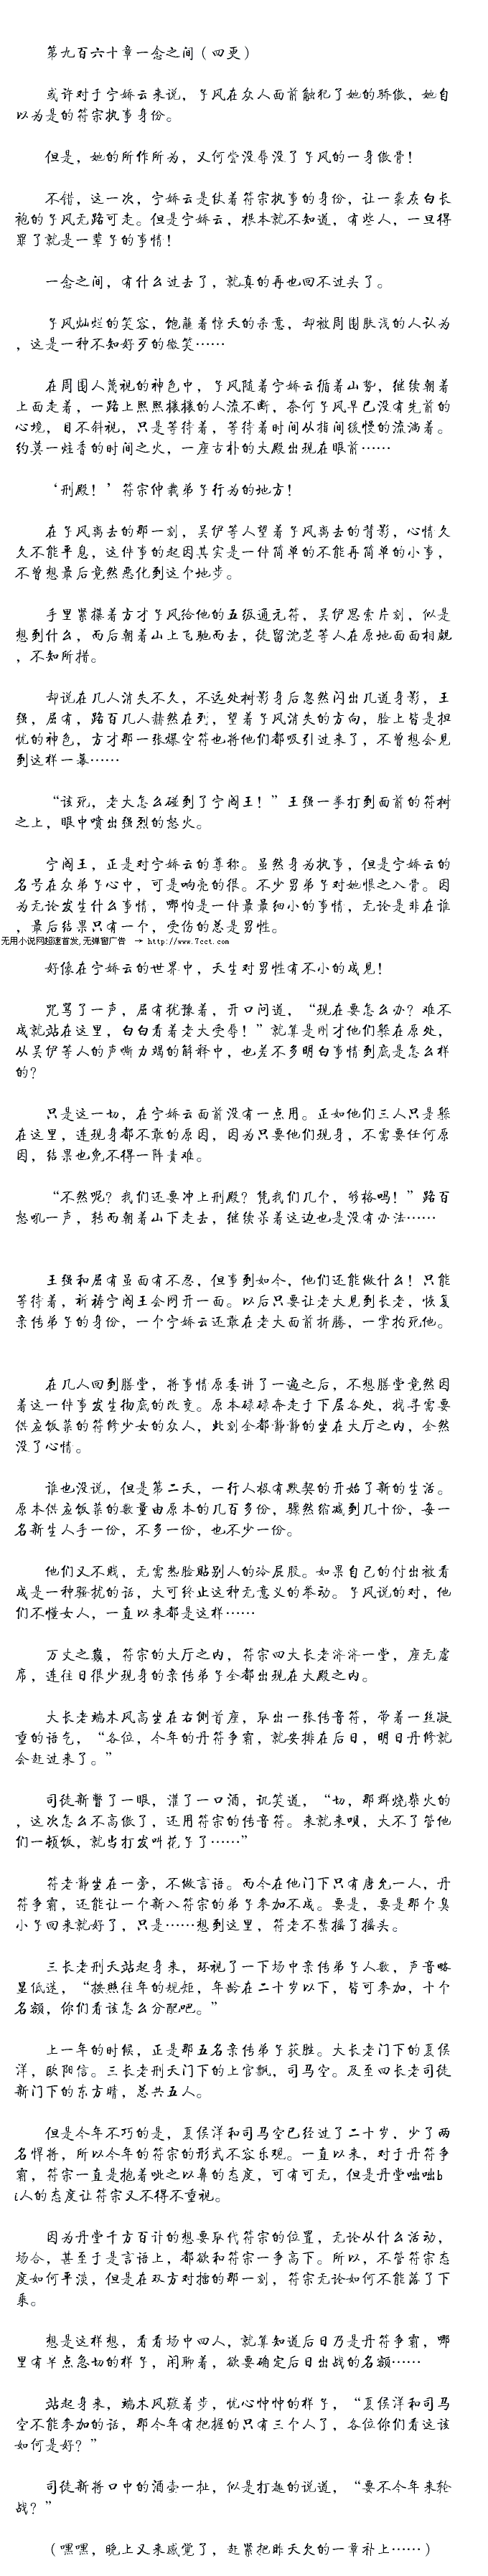 第九百六十章一念之间（四更）
或许对于宁娇云来说，子风在众人面前触犯了她的骄傲，她自
以为是的符宗执事身份。
但是，她的所作所为，又何尝没辱没了子风的一身傲骨！
不错，这一次，宁娇云是仗着符宗执事的身份，让一袭灰白长
袍的子风无路可走。但是宁娇云，根本就不知道，有些人，一旦得
罪了就是一辈子的事情！
一念之间，有什么过去了，就真的再也回不过头了。
子风灿烂的笑容，饱蘸着惊天的杀意，却被周围肤浅的人认为
，这是一种不知好歹的微笑……
在周围人蔑视的神色中，子风随着宁娇云循着山势，继续朝着
上面走着，一路上熙熙攘攘的人流不断，奈何子风早已没有先前的
心境，目不斜视，只是等待着，等待着时间从指间缓慢的流淌着。
约莫一炷香的时间之火，一座古朴的大殿出现在眼前……
‘刑殿！’符宗仲裁弟子行为的地方！
在子风离去的那一刻，吴伊等人望着子风离去的背影，心情久
久不能平息，这件事的起因其实是一件简单的不能再简单的小事，
不曾想最后竟然恶化到这个地步。
手里紧攥着方才子风给他的五级通元符，吴伊思索片刻，似是
想到什么，而后朝着山上飞驰而去，徒留沈芝等人在原地面面相觑
，不知所措。
却说在几人消失不久，不远处树影身后忽然闪出几道身影，王
强，屈有，路百几人赫然在列，望着子风消失的方向，脸上皆是担
忧的神色，方才那一张爆空符也将他们都吸引过来了，不曾想会见
到这样一幕……
“该死，老大怎么碰到了宁阎王！”王强一拳打到面前的符树
之上，眼中喷出强烈的怒火。
宁阎王，正是对宁娇云的尊称。虽然身为执事，但是宁娇云的
名号在众弟子心中，可是响亮的很。不少男弟子对她恨之入骨。因
为无论发生什么事情，哪怕是一件最最细小的事情，无论是非在谁
，最后结果只有一个，受伤的总是男性。
无用小说网超速首发,无弹窗广告 → http://www.7cct.com
好像在宁娇云的世界中，天生对男性有不小的成见！
咒骂了一声，屈有犹豫着，开口问道，“现在要怎么办？难不
成就站在这里，白白看着老大受辱！”就算是刚才他们躲在原处，
从吴伊等人的声嘶力竭的解释中，也差不多明白事情到底是怎么样
的？
只是这一切，在宁娇云面前没有一点用。正如他们三人只是躲
在这里，连现身都不敢的原因，因为只要他们现身，不需要任何原
因，结果也免不得一阵责难。
“不然呢？我们还要冲上刑殿？凭我们几个，够格吗！”路百
怒吼一声，转而朝着山下走去，继续呆着这边也是没有办法……
王强和屈有虽面有不忍，但事到如今，他们还能做什么！只能
等待着，祈祷宁阎王会网开一面。以后只要让老大见到长老，恢复
亲传弟子的身份，一个宁娇云还敢在老大面前折腾，一掌拍死他。
在几人回到膳堂，将事情原委讲了一遍之后，不想膳堂竟然因
着这一件事发生彻底的改变。原本碌碌奔走于下层各处，找寻需要
供应饭菜的符修少女的众人，此刻全都静静的坐在大厅之内，全然
没了心情。
谁也没说，但是第二天，一行人极有默契的开始了新的生活。
原本供应饭菜的数量由原本的几百多份，骤然缩减到几十份，每一
名新生人手一份，不多一份，也不少一份。
他们又不贱，无需热脸贴别人的冷屁股。如果自己的付出被看
成是一种骚扰的话，大可终止这种无意义的举动。子风说的对，他
们不懂女人，一直以来都是这样……
万丈之巅，符宗的大厅之内，符宗四大长老济济一堂，座无虚
席，连往日很少现身的亲传弟子全都出现在大殿之内。
大长老端木风高坐在右侧首座，取出一张传音符，带着一丝凝
重的语气，“各位，今年的丹符争霸，就安排在后日，明日丹修就
会赶过来了。”
司徒新瞥了一眼，灌了一口酒，讥笑道，“切，那群烧柴火的
，这次怎么不高傲了，还用符宗的传音符。来就来呗，大不了管他
们一顿饭，就当打发叫花子了……”
符老静坐在一旁，不做言语。而今在他门下只有唐允一人，丹
符争霸，还能让一个新入符宗的弟子参加不成。要是，要是那个臭
小子回来就好了，只是……想到这里，符老不禁摇了摇头。
三长老刑天站起身来，环视了一下场中亲传弟子人数，声音略
显低迷，“按照往年的规矩，年龄在二十岁以下，皆可参加，十个
名额，你们看该怎么分配吧。”
上一年的时候，正是那五名亲传弟子获胜。大长老门下的夏侯
洋，欧阳信。三长老刑天门下的上官飘，司马空。及至四长老司徒
新门下的东方晴，总共五人。
但是今年不巧的是，夏侯洋和司马空已经过了二十岁，少了两
名悍将，所以今年的符宗的形式不容乐观。一直以来，对于丹符争
霸，符宗一直是抱着呲之以鼻的态度，可有可无，但是丹堂咄咄b
i人的态度让符宗又不得不重视。
因为丹堂千方百计的想要取代符宗的位置，无论从什么活动，
场合，甚至于是言语上，都欲和符宗一争高下。所以，不管符宗态
度如何平淡，但是在双方对擂的那一刻，符宗无论如何不能落了下
乘。
想是这样想，看看场中四人，就算知道后日乃是丹符争霸，哪
里有半点急切的样子，闲聊着，欲要确定后日出战的名额……
站起身来，端木风踱着步，忧心忡忡的样子，“夏侯洋和司马
空不能参加的话，那今年有把握的只有三个人了，各位你们看这该
如何是好？”
司徒新将口中的酒壶一扯，似是打趣的说道，“要不今年来轮
战？”
（嘿嘿，晚上又来感觉了，赶紧把昨天欠的一章补上……）